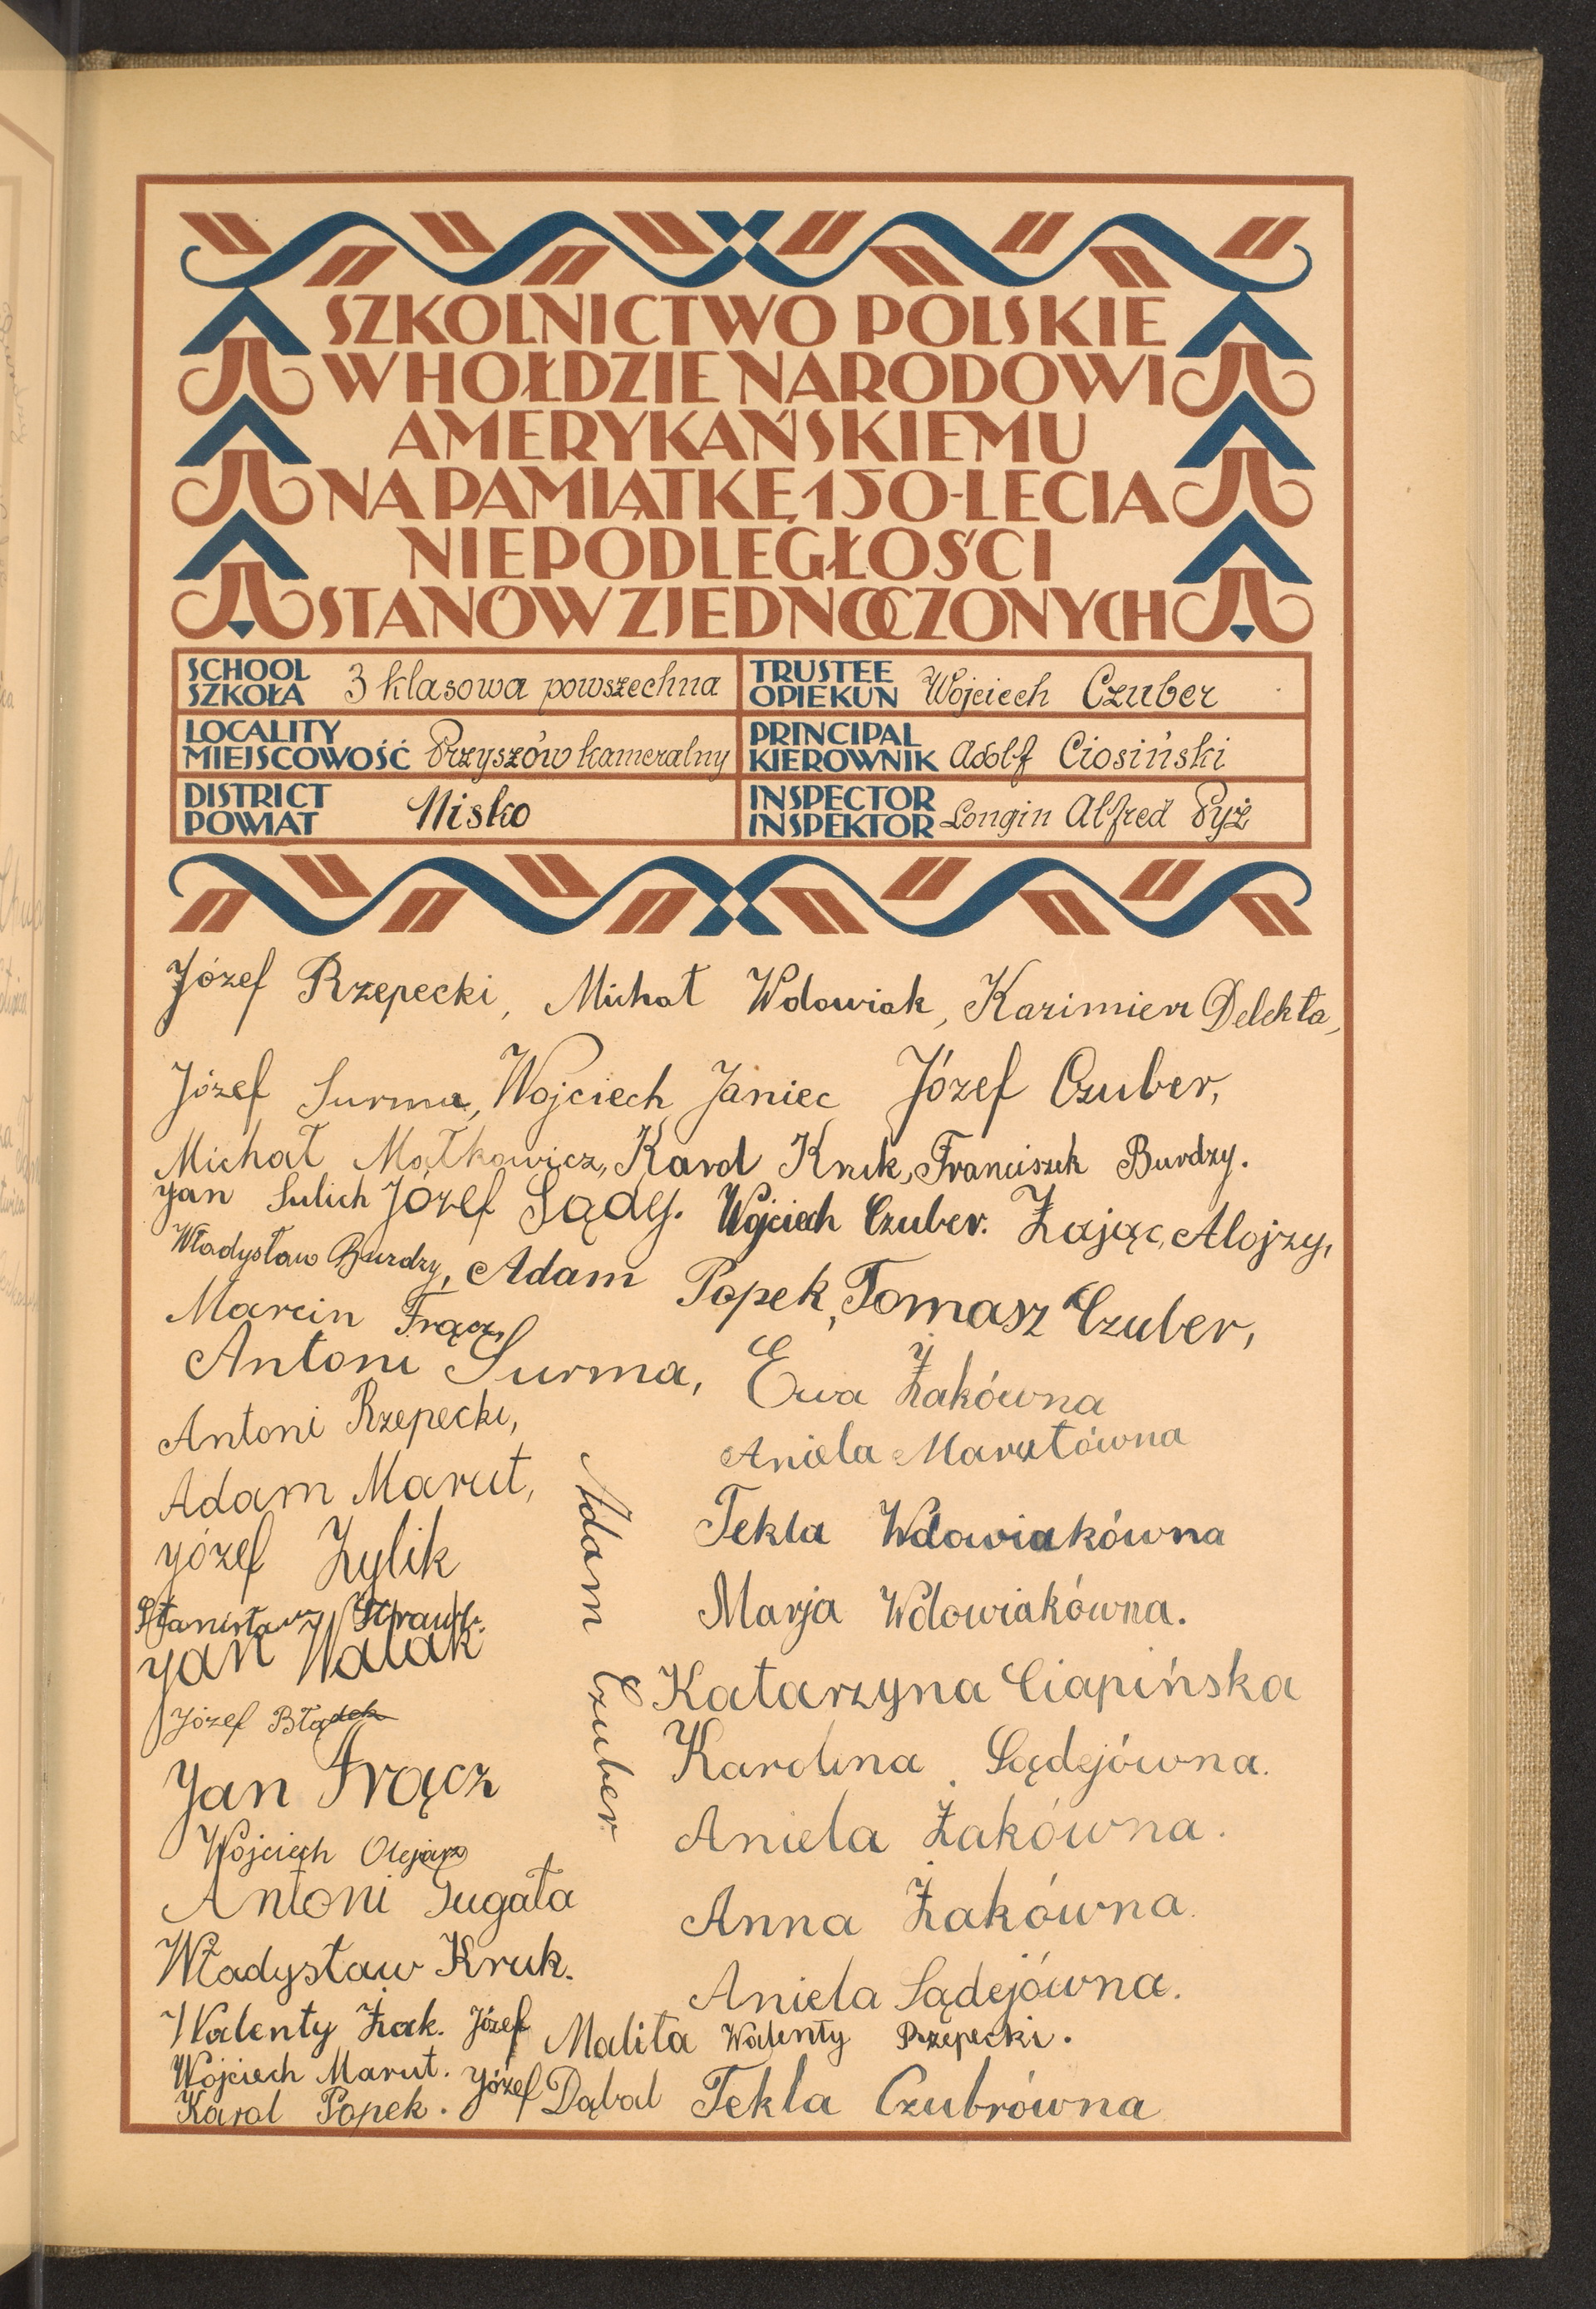 SZKOLNICTWO POLSKIE
W HOŁDZIE NARODOWI
AMERYKAŃSKIEMU
NA PAMIĄTKĘ 150-LECIA
NIEPODLEGŁOŚCI
STANÓW ZJEDNOCZONYCH
SCHOOL
SZKOŁA 3 klasowa powszechna
TRUSTEE
OPIEKUN Wojciech Czuber
LOCALITY
MIEJSCOWOŚĆ Przyszów kameralny
PRINCIPAL
KIEROWNIK Adolf Ciosiński
DISTRICT
POWIAT Nisko
INSPECTOR
INSPEKTOR Longin Alfred Pyż
Józef Rzepecki, Michał Wdowiak, Kazimierz Delekta,
Józef Surma, Wojciech Janiec Józef Czuber,
Michał Mątkowicz, Karol Kruk, Franciszek Burdzy.
Jan Sulich Józef Sądej. Wojciech Czuber. Zając, Alojzy,
Władysław Burdzy, Adam Popek, Tomasz Czuber,
Marcin Frącz,
Antoni Surma,
Antoni Rzepecki,
Adam Marut,
Józef Żylik
Stanisław
Jan Walak
Józef Błądek
Jan Frącz
Wojciech Olejarz
Antoni Gugała
Władysław Kruk.
Walenty Żak. Józef Malita Walenty Rzepecki.
Wojciech Marut. Józef Dąbal
Karol Popek.
Adam Czuber.
Ewa Żakówna
Aniela Marutówna
Tekla Wdowiakówna
Marja Wdowiakówna.
Katarzyna Ciapińska
Karolina Sądejówna.
Aniela Żakówna.
Anna Żakówna.
Aniela Sądejówna.
Tekla Czubrówna